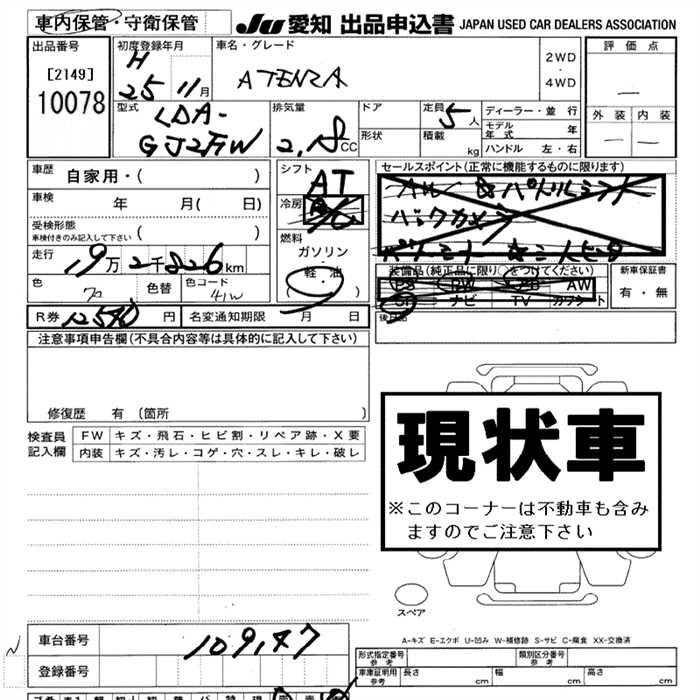 車内保管・守衛保管
JU 愛知 出品申込書 JAPAN USED CAR DEALERS ASSOCIATION
出品番号 初度登録年月 車名・グレード 2WD ・ 4WD 評価点
[2149]
10078
H 25 11月 ATENZA
外装 内装
型式 排気量 ドア 定員 5人 ディーラー・並行
LDA-
形状 積載 kg モデル年式 年
2.18cc
ハンドル 左・右
車歴 自家用・( )
シフト AT
セールスポイント(正常に機能するものに限ります)
車検 年 月( 日)
冷房
受検形態 ( )
車検付きのみ記入して下さい
燃料
ガソリン・軽・油
( )
走行 19万2千826km
装備品(純正品に限り○をつけてください)
新車保証書
有・無
PS PW AB AW
SR ナビ TV カワシート
色 色替 色コード
41W
R券 12540円 名変通知期限 月 日
後日品
注意事項申告欄(不具合内容等は具体的に記入して下さい)
修復歴 有(箇所 )
検査員記入欄
FW キズ・飛石・ヒビ割・リペア跡・X要
内装 キズ・汚レ・コゲ・穴・スレ・キレ・破レ
現状車
※このコーナーは不動車も含み
ますのでご注意下さい
スペア
A-キズ E-エクボ U-凹み W-補修跡 S-サビ C-腐食 XX-交換済
車台番号 109147
登録番号
形式指定番号 参考 類別区分番号 参考
車庫証明用 参考 長さ cm 幅 cm 高さ cm